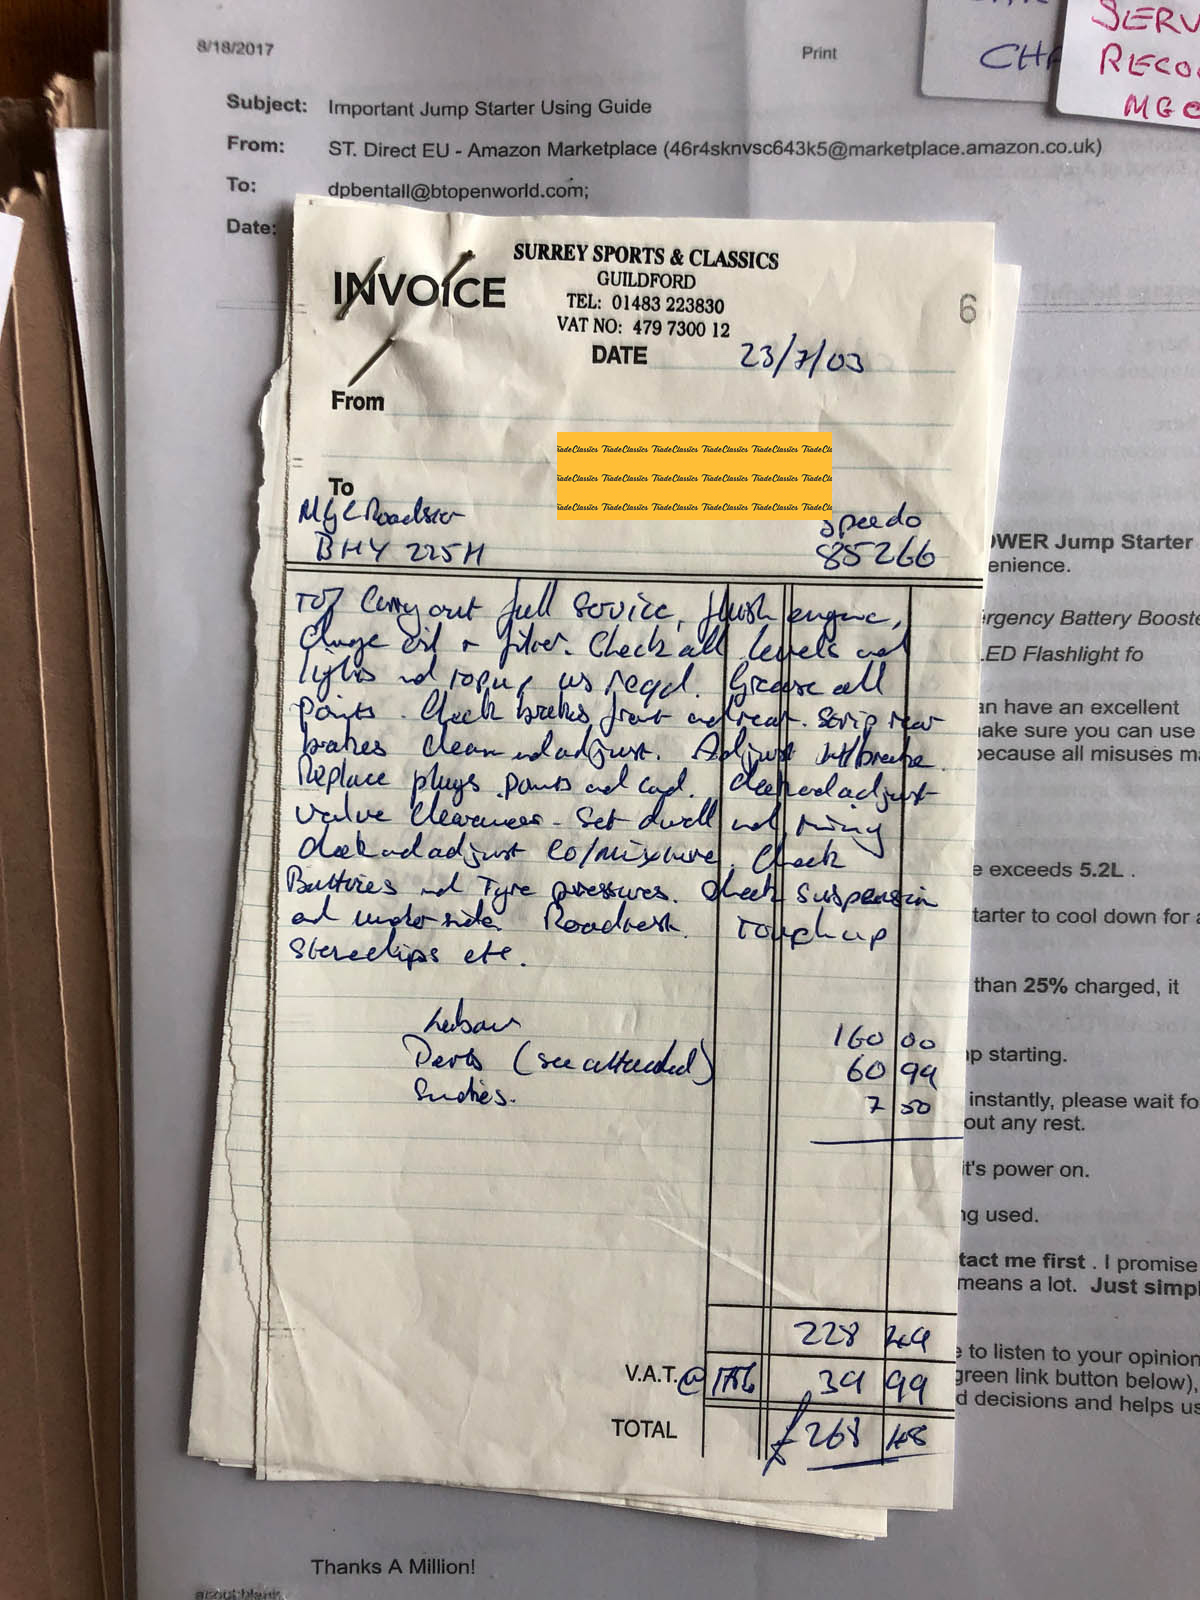 8/18/2017
Print
CHA
SERV
RECO
MGC
Subject: Important Jump Starter Using Guide
From: ST. Direct EU - Amazon Marketplace (46r4sknvsc643k5@marketplace.amazon.co.uk)
To: dpbentall@btopenworld.com;
Date:
INVOICE
SURREY SPORTS & CLASSICS
GUILDFORD
TEL: 01483 223830
VAT NO: 479 7300 12
6
DATE 23/7/03
From
TradeClassics TradeClassics TradeClassics TradeClassics TradeClassics
TradeClassics TradeClassics TradeClassics TradeClassics TradeClassics
TradeClassics TradeClassics TradeClassics TradeClassics TradeClassics
To
MGC Roadster Speedo
BHY 225H 85266
To/ Carry out full Service, flush engine,
Change oil + filter. Check all levels and
lights and top up as reqd. Grease all
points. Check brakes front and rear. Strip rear
brakes clean and adjust. Adjust H/brake.
Replace plugs points and cond. Check and adjust
valve clearances - Set dwell and timing
Check and adjust CO/mixture. Check
Batteries and Tyre pressures. Check suspension
and underside. Roadtest. Touch up
stonechips etc.
Labour 160 00
Parts (see attached) 60 99
Sundries. 7 50
228 49
V.A.T. @ 17½% 39 99
TOTAL £268 48
OWER Jump Starter
enience.
ergency Battery Booste
LED Flashlight fo
an have an excellent
make sure you can use
because all misuses ma
e exceeds 5.2L .
tarter to cool down for a
than 25% charged, it
p starting.
instantly, please wait fo
out any rest.
it's power on.
ng used.
tact me first . I promise
means a lot. Just simpl
e to listen to your opinion
green link button below),
d decisions and helps us
Thanks A Million!
about:blank